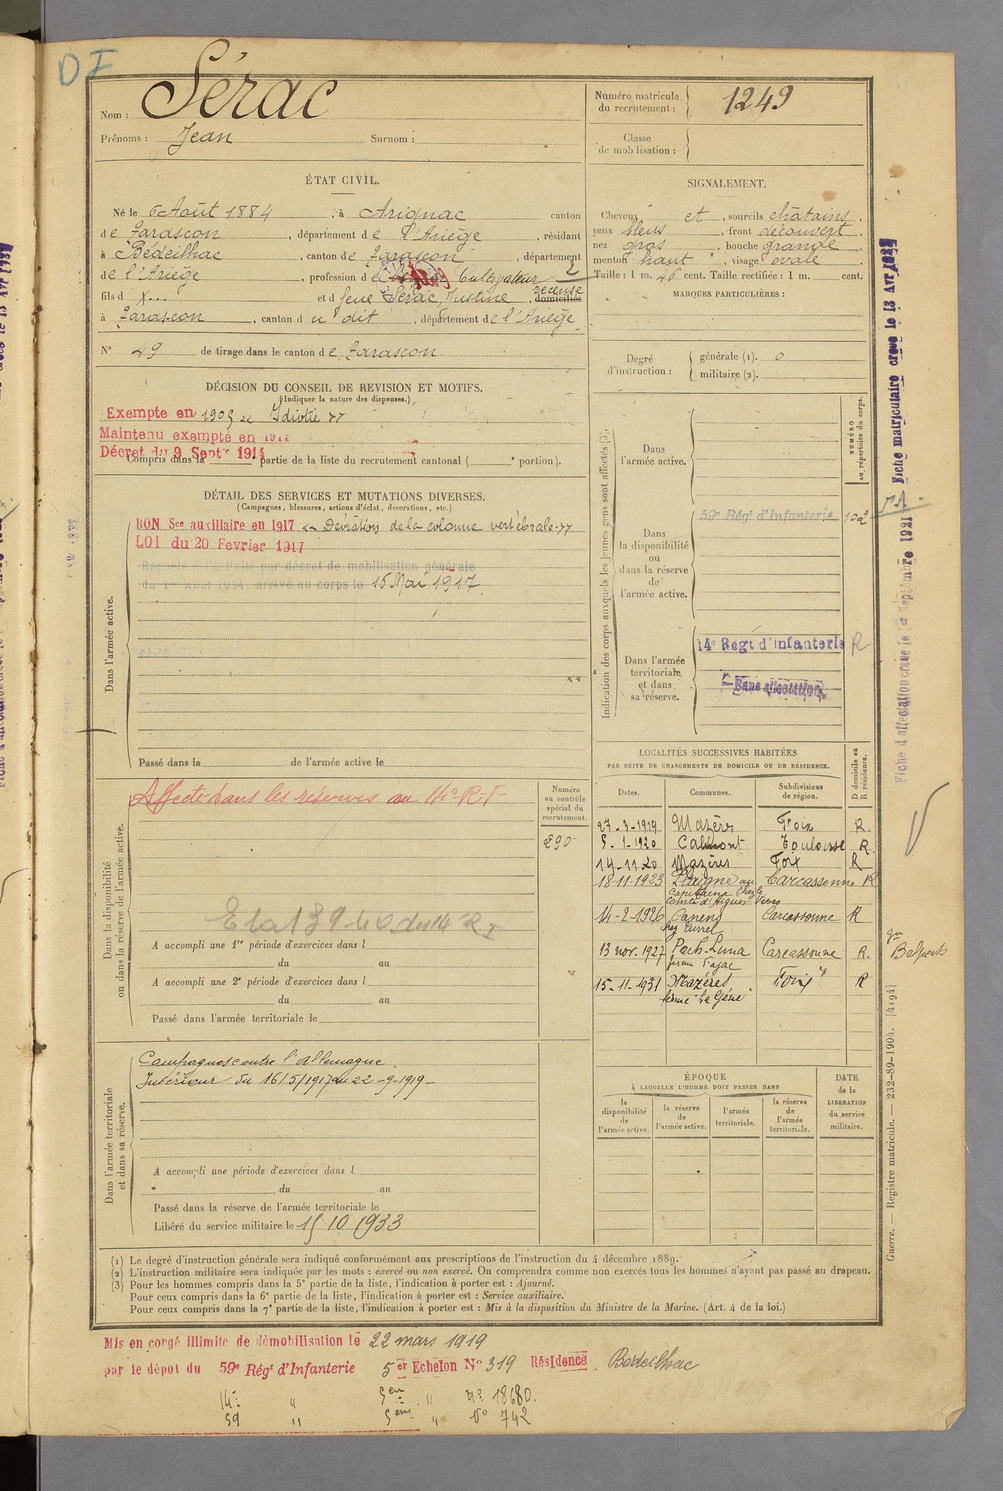 DI
Nom : Sérac
Prénoms : Jean Surnom :
Numéro matricule du recrutement : 1249
Classe de mobilisation :
ÉTAT CIVIL.
Né le 6 Août 1884, à Arignac canton
de Tarascon, département de l'Ariège, résidant
à Bédeilhac, canton de Tarascon, département
de l'Ariège, profession de Cultivateur
fils d x... et de feue Sérac, Justine, domiciliés recensé
à Tarascon, canton du dit, département de l'Ariège
N° 49 de tirage dans le canton de Tarascon
SIGNALEMENT.
Cheveux et, sourcils châtains,
yeux bleus, front découvert,
nez gros, bouche grande
menton haut, visage ovale
Taille : 1 m. 46 cent. Taille rectifiée : 1 m. cent.
2
MARQUES PARTICULIÈRES :
Degré d'instruction : générale (1). 0
militaire (2).
DÉCISION DU CONSEIL DE REVISION ET MOTIFS.
(Indiquer la nature des dispenses.)
Exempté en 1905 Idiotie
Maintenu exempté en
Décret du 9 Septre 1914
Compris dans la partie de la liste du recrutement cantonal ( e portion).
DÉTAIL DES SERVICES ET MUTATIONS DIVERSES.
(Campagnes, blessures, actions d'éclat, décorations, etc.)
Dans l'armée active.
BON Sce auxiliaire en 1917 Déviation de la colonne vertébrale
LOI du 20 Fevrier 1917
Rappelé à l'activité par décret de mobilisation générale
du 1er Août 1914. arrivé au corps le 16 Mai 1917.
Passé dans la de l'armée active le
Indication des corps auxquels les jeunes gens sont affectés (3).
NUMÉRO au répertoire du corps.
Dans l'armée active.
Dans la disponibilité ou dans la réserve de l'armée active.
59e Régt d'Infanterie
Dans l'armée territoriale et dans sa réserve.
14e Regt d'infanterie R
Sans affectation
Fiche matriculaire créée le 13 Avr
Fiche d'affectation créée le 1er Septembre 1921
Dans la disponibilité ou dans la réserve de l'armée active.
Affecté dans les réserves au R.I.
Numéro au contrôle spécial du recrutement.
290
A accompli une 1re période d'exercices dans l
du au
A accompli une 2e période d'exercices dans l
du au
Passé dans l'armée territoriale le
LOCALITÉS SUCCESSIVES HABITÉES
PAR SUITE DE CHANGEMENTS DE DOMICILE OU DE RÉSIDENCE.
Dates. Communes. Subdivisions de région. D domicile ou R résidence.
27-3-1919 Mazères Foix R.
5-1-1920 Calmont Toulouse R.
14-11-20 Mazères Foix R
18-11-1923 Plaigne Carcassonne R
14-2-1926 Carcassonne R
13 nov. 1927 Pech-Luna Carcassonne R.
ferme Fajac
15-11-1931 Mazères Foix R
ferme
Belpech
Dans l'armée territoriale et dans sa réserve.
Campagnes contre l'Allemagne.
Intérieur du 16/5/1917 au 22-9-1919-
A accompli une période d'exercices dans l
du au
Passé dans la réserve de l'armée territoriale le
Libéré du service militaire le 15 10 1933
ÉPOQUE
À LAQUELLE L'HOMME DOIT PASSER DANS
la disponibilité de l'armée active. la réserve de l'armée active. l'armée territoriale. la réserve de l'armée territoriale.
DATE de la LIBÉRATION du service militaire.
Guerre. — Registre matricule. — 232-89-1904. [4194]
(1) Le degré d'instruction générale sera indiqué conformément aux prescriptions de l'instruction du 4 décembre 1889.
(2) L'instruction militaire sera indiquée par les mots : exercé ou non exercé. On comprendra comme non exercés tous les hommes n'ayant pas passé au drapeau.
(3) Pour les hommes compris dans la 5e partie de la liste, l'indication à porter est : Ajourné.
Pour ceux compris dans la 6e partie de la liste, l'indication à porter est : Service auxiliaire.
Pour ceux compris dans la 7e partie de la liste, l'indication à porter est : Mis à la disposition du Ministre de la Marine. (Art. 4 de la loi.)
Mis en congé illimité de démobilisation le 22 mars 1919
par le dépot du 59e Régt d'Infanterie 5er Echelon N° 319 Résidence Bédeilhac
14e " 5em " n° 18680.
59 " 5ème " N° 742